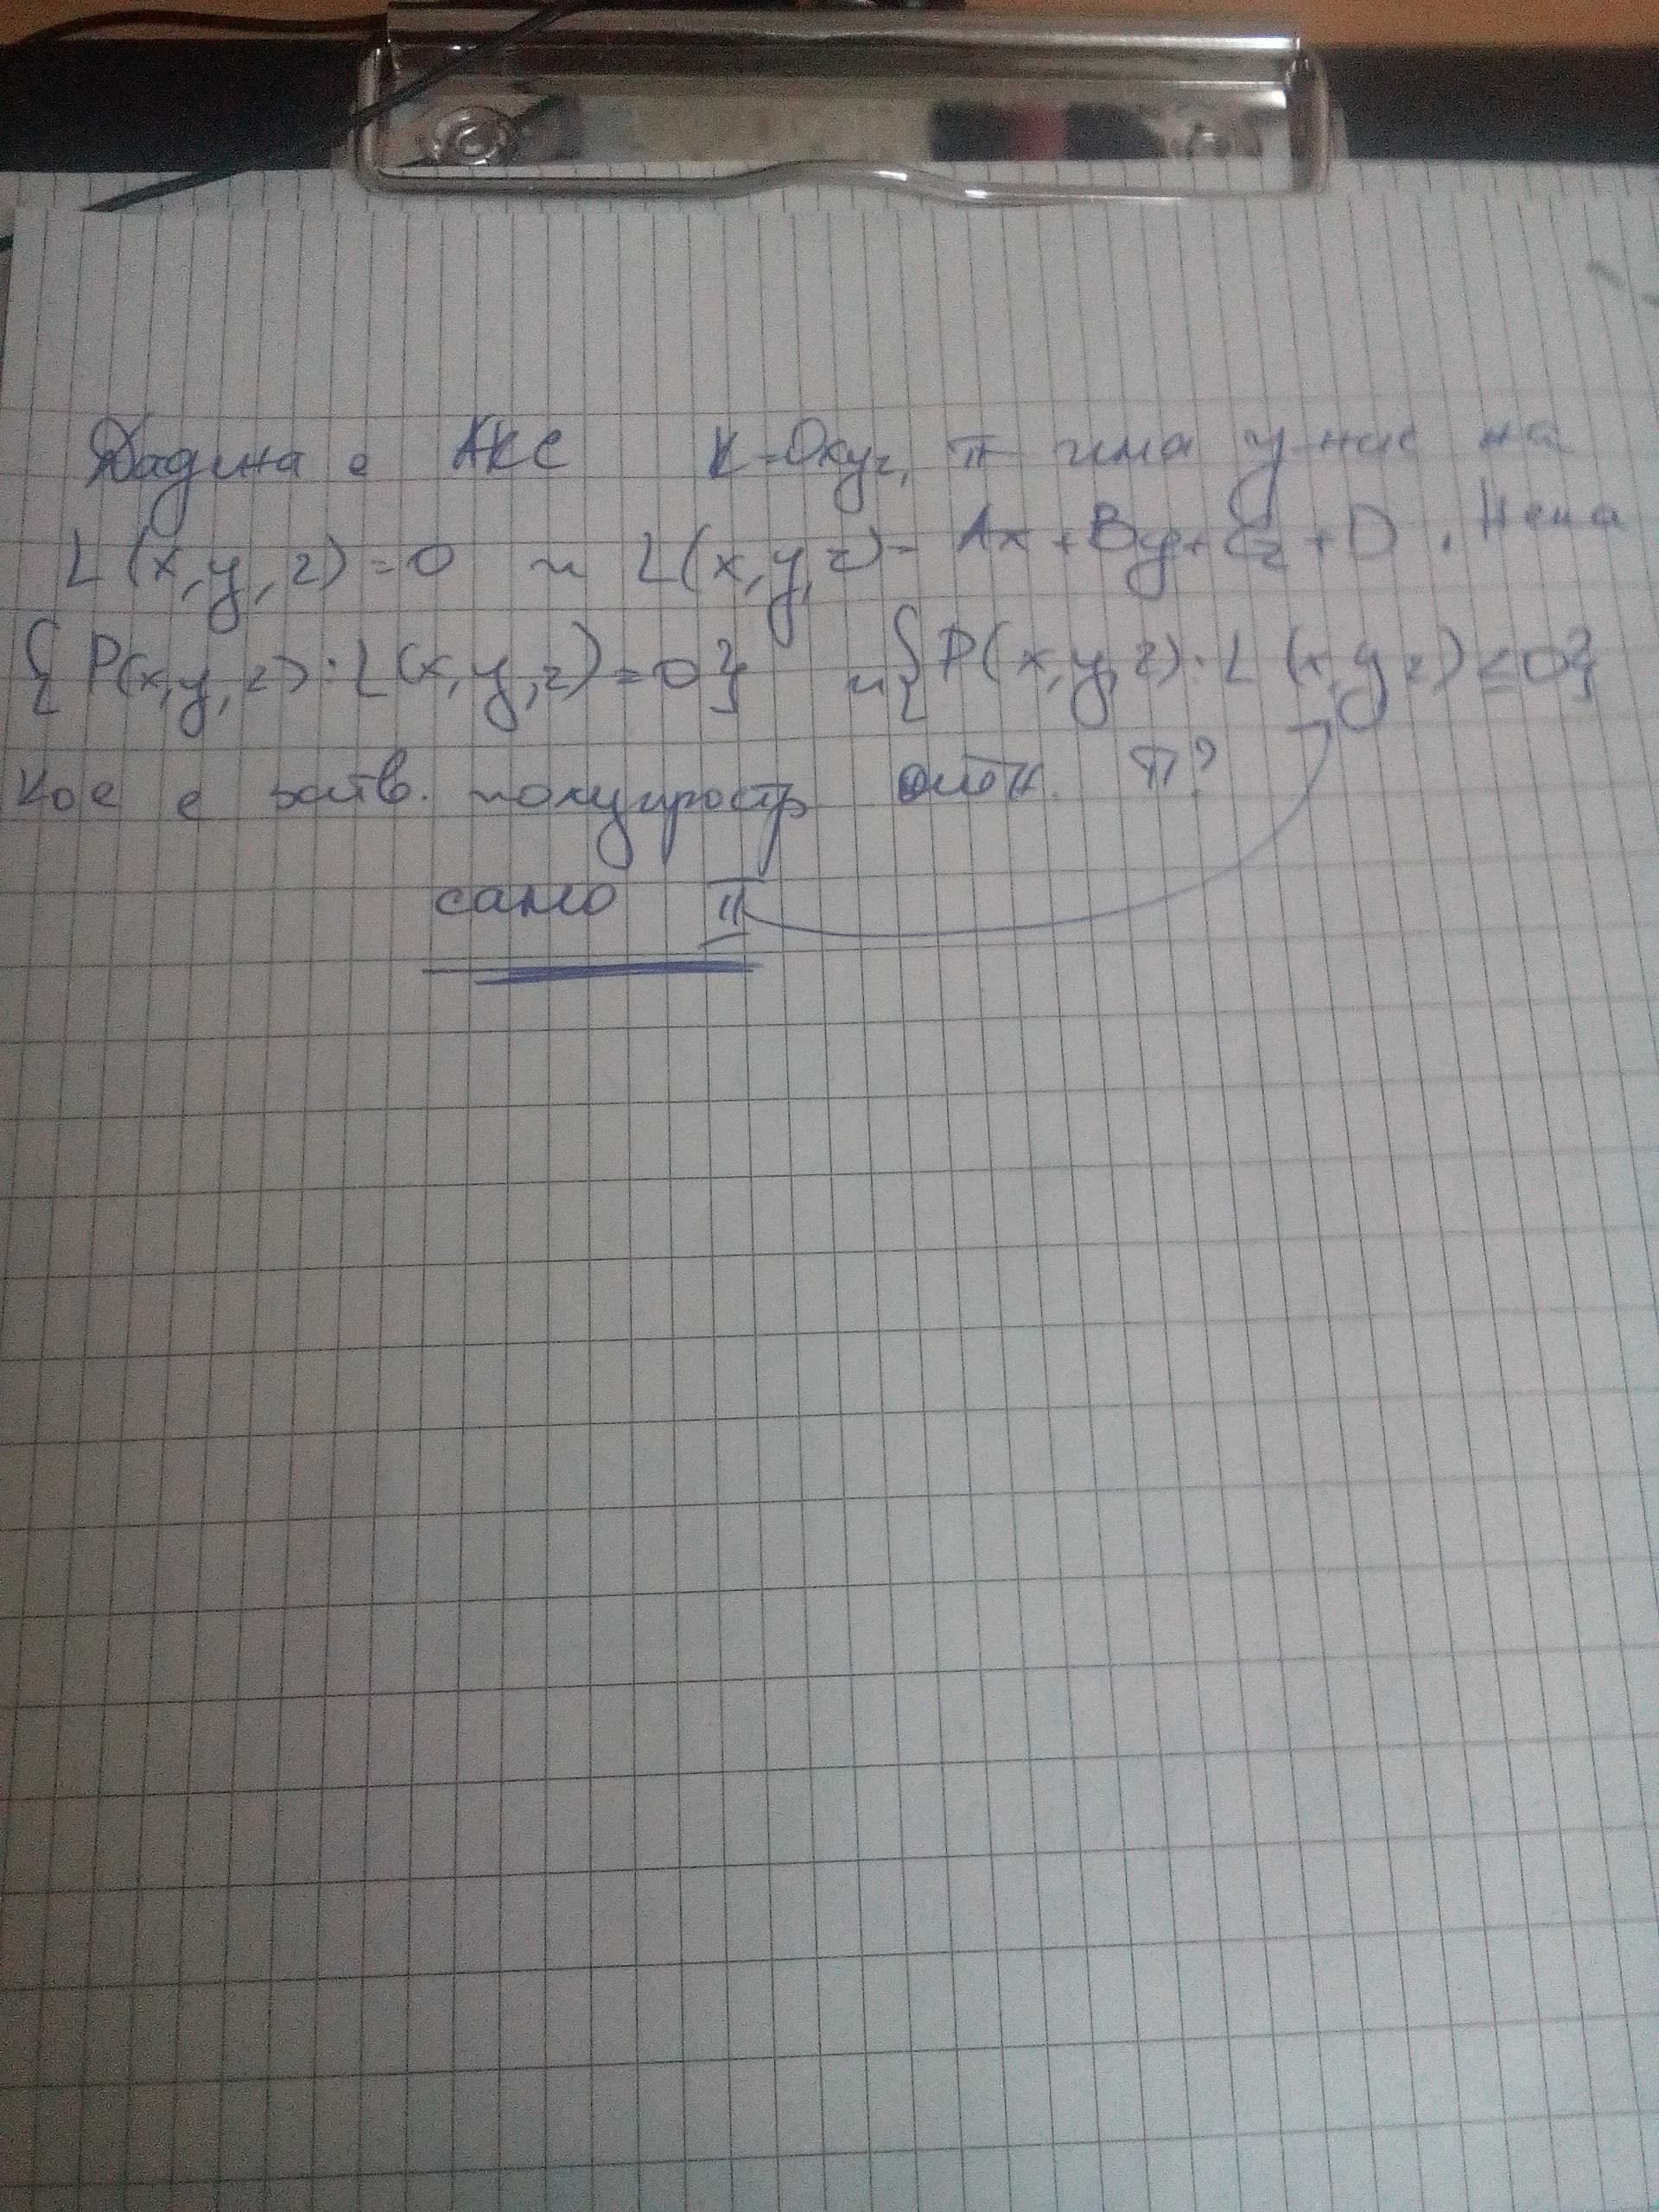 Дадена е АКС K=Oxyz, π има у-ние на
L(x,y,z)=0 и L(x,y,z)= Ax+By+Cz+D. Нека
{P(x,y,z):L(x,y,z)=0} и {P(x,y,z):L(x,y,z)≤0}
кое е затв. полупростр отн. π?
само II